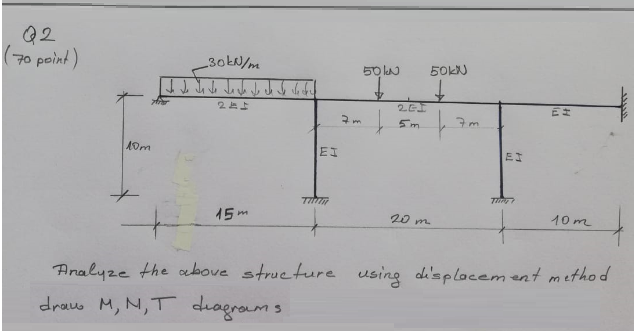 Q2
(70 point)
30kN/m
50kN 50kN
2EI 2EI EI
7m 5m 7m
10m EI EI
15m 20m 10m
Analyze the above structure using displacement method
draw M, N, T diagrams